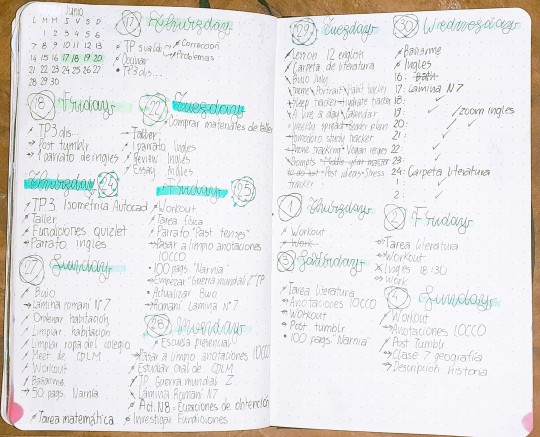 Junio
L M M J V S D
1 2 3 4 5 6
7 8 9 10 11 12 13
14 15 16 17 18 19 20
21 22 23 24 25 26 27
28 29 30
17 Thursday
TP sualdb
Corrección
Problemas
Doujnar
TP3 dis...
18 Friday
TP3 dis
Post tumblr
1 parrafo de ingles
22 Tuesday
Comprar materiales de taller
Taller
1 Parrafo Ingles
Review Ingles
Essay Ingles
Thursday 24
TP3 Isometrica Autocad
Taller
Fundiciones quizlet
Parrafo ingles
Friday 25
Workout
Tarea fisica
Parrafo "Past tenses"
Pasar a limpio anotaciones
10CCO
100 pags. "Narnia"
Empezar "Guerra mundial Z" TP
Actualizar Bujo
Romani Lamina N°7
27 Sunday
Bujo
Lamina romani N°7
Ordenar habitación
Limpiar habitación
Limpiar ropa del colegio
Meet de CDLM
Workout
Bañarme
50 pags. Narnia
Tarea matemática
28 Monday
Escuela presencial
Pasar a limpio anotaciones 10CCO
Estudiar oral de CDLM
TP Guerra mundial Z
Lámina Romani N°7
Act. N8 - Ecuaciones de obtención
Investigar Fundiciones
29 Tuesday
Lesson 12 english
Carpeta de literatura
Bujo July
Theme Portrait Habit tracker
Sleep tracker Gratitude tracker
A line a day Calendar
weekly spread Blazer plans
Pomodoro study tracker
tracking Vegan recipes
Prompts
Post ideas Stress
tracker
30 Wednesday
Bañarme
Ingles
16:
17: Lamina N°7
18:
19: zoom ingles
20:
21:
22:
23:
24: Carpeta Literatura
1:
2:
1 Thursday
Workout
Work
2 Friday
Tarea literatura
Workout
Ingles 18:30
Work
3 Saturday
Tarea literatura
Anotaciones 10CCO
Workout
Post tumblr
100 pags "Narnia"
4 Sunday
Workout
Anotaciones 10CCO
Post Tumblr
Clase 7 geografía
Descripción historia